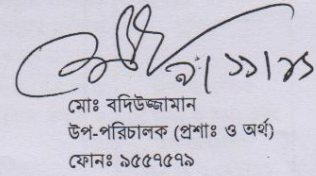 ৯|১১|১১
মোঃ বদিউজ্জামান
উপ-পরিচালক (প্রশাঃ ও অর্থ)
ফোনঃ ৯৫৫৭৫৭৯